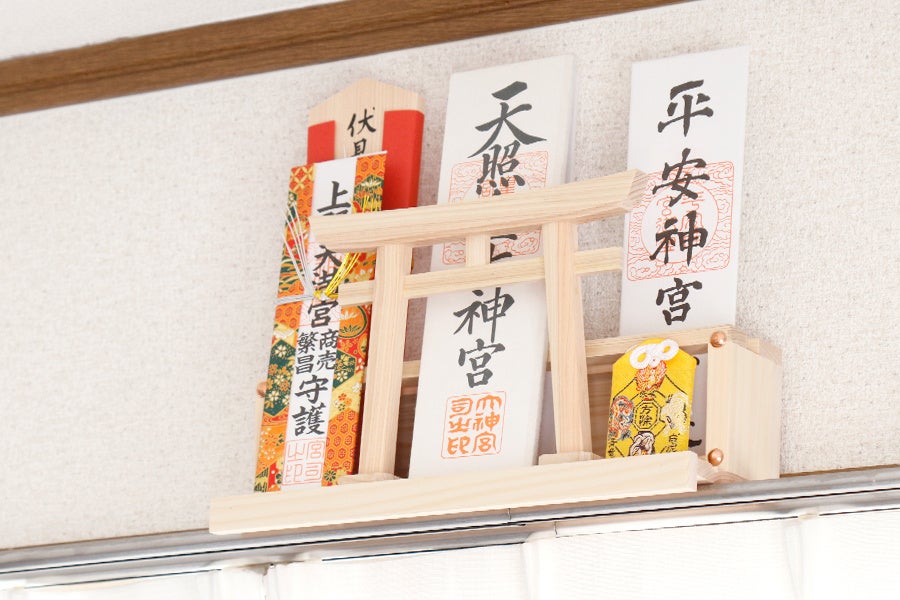 伏見
上
天満宮
商売
繁昌
守護
天照
神宮
大神宮
司之印
平安神宮
方除